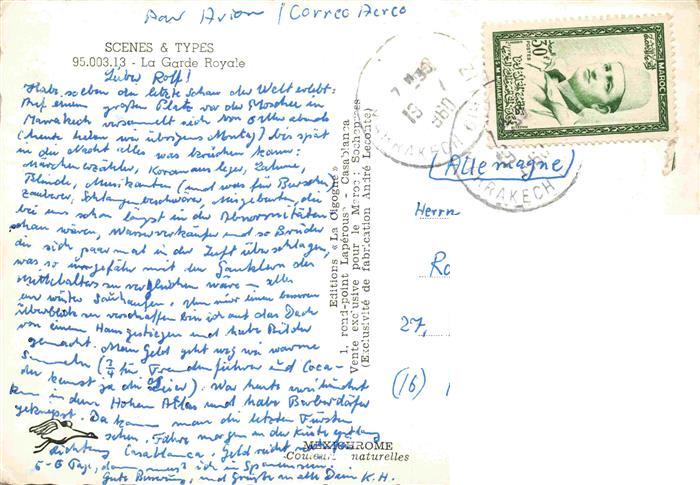 Par Avion / Correo Aereo
SCENES & TYPES
95.003.13 - La Garde Royale
Lieber Rolf!
Habe soeben die letzte Schau der Welt erlebt:
Auf einem großen Platz vor der Moschee in
Marrakech versammelt sich von
(heute haben wir übrigens Montag) bis spät
in die Nacht alles was kriechen kann:
Märchenerzähler, Koranausleger, Lahme,
Blinde, Musikanten (und was für Burschen)
Zauberer, Schlangenbeschwörer, Missgeburten, die
bei uns schon längst in der Abnormitäten
schau wären, Wasserverkäufer und so Brüder
die sich paarmal in der Luft überschlagen,
was so ungefähr mit den Gauklern des
Mittelalters zu vergleichen wäre – alles
ein wüster Sauhaufen. Um mir einen besseren
Überblick zu verschaffen bin ich auf das Dach
von einem Haus gestiegen und habe Bilder
gemacht. Mein Geld geht weg wie warme
Semmeln (3/4 für Fremdenführer und Coca-
der kennst ja die Leier). War heute
in dem Hohen Atlas und habe Berberdörfer
geknipst. Da kann man die letzten Fürsten
sehen. Fahre morgen an der Küste entlang
Richtung Casablanca. Geld reicht
5-6 Tage, dann muss ich in Spanien sein.
Gute Besserung, und Grüße an alle Dein K.H.
Editions «La Cigogne»
1, rond-point Lapérouse - Casablanca
Vente exclusive pour le Maroc: Sochepress
(Exclusivité de fabrication André Leconte)
MEXICHROME
Couleurs naturelles
MAROC
POSTES
30F
MARRAKECH
1960
(Allemagne)
MARRAKECH
Herrn
Ro
27,
(16)